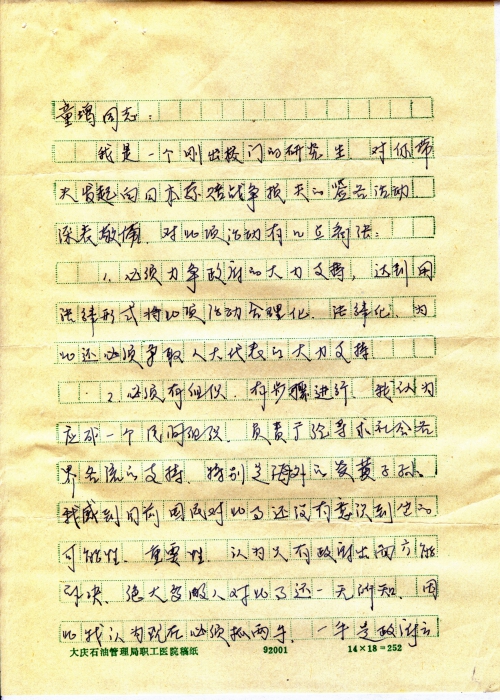 童增同志：
我是一个刚出校门的研究生，对你带
头发起向日本索赔战争损失的签名活动
深表敬佩，对此项活动有几点看法：
1、必须力争政府的大力支持，达到用
法律形式将此项活动合理化、法律化，为
此还必须争取人大代表的大力支持
2、必须有组织、有步骤进行，我认为
应成一个民间组织，负责广泛寻求社会各
界名流的支持，特别是海外的炎黄子孙。
我感到目前国民对此事还没有意识到它的
可能性、重要性，认为只有政府出面方能
解决，绝大多数人对此事还一无所知，因
此我认为现在必须抓两手，一手是政府方
大庆石油管理局职工医院稿纸 92001 14×18=252